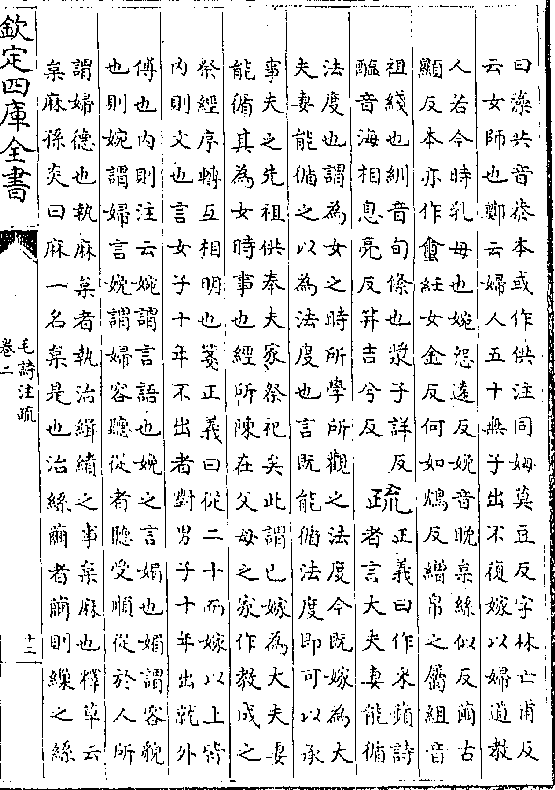 曰藻共音恭本或作供注同姆莫豆反字林亡甫反
云女師也鄭云婦人五十無子出不復嫁以婦道教
人若今時乳母也婉怨遠反娩音晚枲絲似反繭古
顯反本亦作紝女金反何如鴆反繒帛之屬組音
祖綫也紃音旬絛也漿子詳反
醢音海相息亮反笄吉兮反
疏
正義曰作采蘋詩
者言大夫妻能循
法度也謂為女之時所學所觀之法度今既嫁為大
夫妻能循之以為法度也言既能循法度即可以承
事夫之先祖供奉夫家祭祀矣此謂已嫁為大夫妻
能循其為女時事也經所陳在父母之家作教成之
祭經序轉互相明也箋正義曰從二十而嫁以上皆
内則文也言女子十年不出者對男子十年出就外
傅也内則注云婉謂言語也娩之言媚也媚謂容貌
也則婉謂婦言娩謂婦容聽從者聽受順從於人所
謂婦德也執麻枲者執治緝績之事枲麻也釋草云
枲麻孫炎曰麻一名枲是也治絲繭者繭則繅之絲
欽定四庫全書
毛詩注疏
卷二
十二